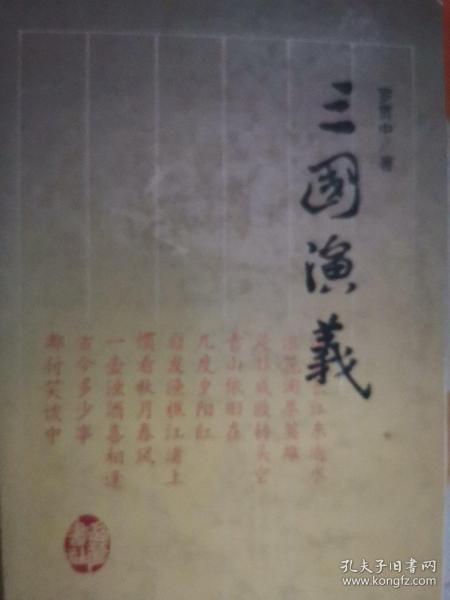 罗贯中/著
三國演義
长江东逝水
浪花淘尽英雄
是非成败转头空
青山依旧在
几度夕阳红
白发渔樵江渚上
惯看秋月春风
一壶浊酒喜相逢
古今多少事
都付笑谈中
孔夫子旧书网
www.kongfz.com